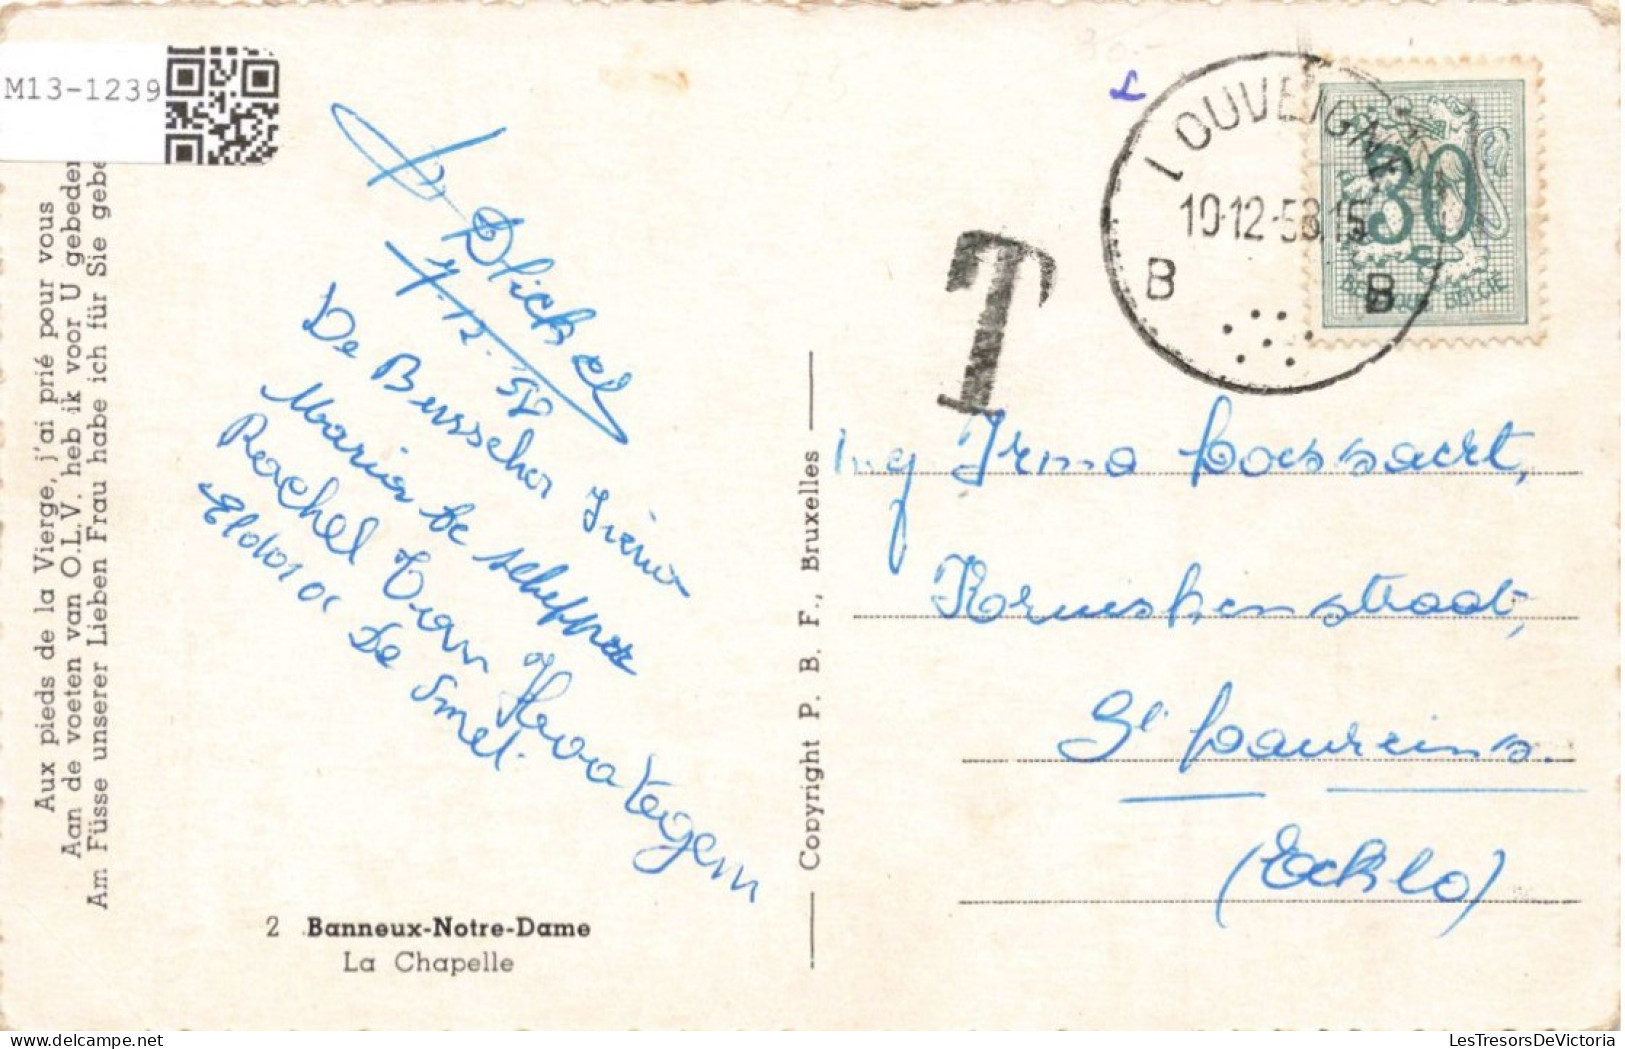 M13-1239
Aux pieds de la Vierge, j'ai prié pour vous
Aan de voeten van O.L.V. heb ik voor U gebeden
Am Füsse unserer Lieben Frau habe ich für Sie gebe
7.12.58
De Busscher Irèna
Maria De Schepper
Rachel Van Hevategem
Eldora De Smet.
2 Banneux-Notre-Dame
La Chapelle
Copyright P. B. F., Bruxelles
LOUVEIGNE
10-12-58.15
B B
T
30
BELGIQUE BELGIE
Irma Cossaert,
straat,
St Laureins.
(Eeklo)
LesTresorsDeVictoria